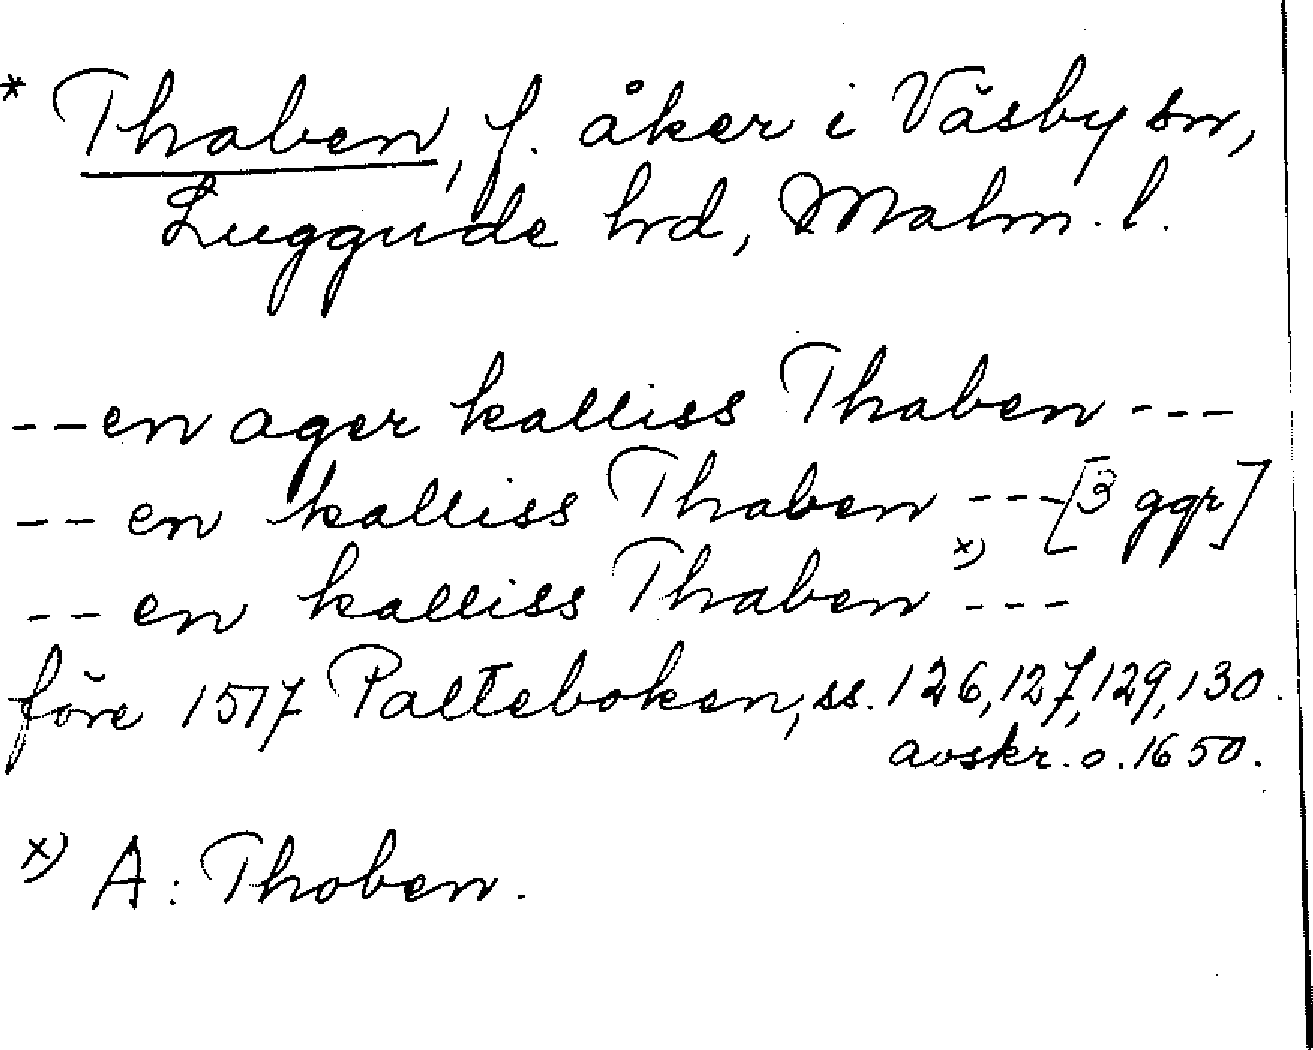 * Thaben, f. åker i Väsby sn,
Luggude hrd, Malm. l.
-- en ager kalliss Thaben ---
-- en kalliss Thaben --- [3 ggr]
-- en kalliss Thaben x) ---
före 1517 Palteboken, ss. 126, 127, 129, 130.
avskr. o. 1650.
x) A: Thoben.